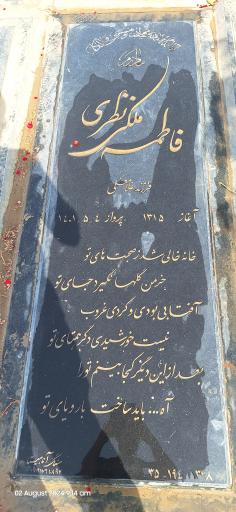 فاطمه ملکی نظری
آغاز ۱۳۱۵ پرواز ۱۴۰۱.۵.۴
خانه خالی شد ز صحبت های تو
خرمن گلها نگیرد جای تو
آفتابی بودی و کردی غروب
نیست خورشیدی دگر همتای تو
بعد از این دیگر کجا بینم تو را
آه... باید ساخت با رویای تو
۳۵-۱۹۴-۳۰۸
02 August 2024 9:14 am